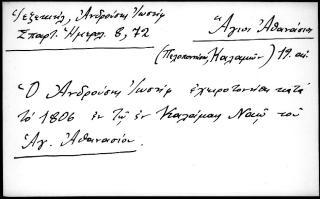 Ἀνδρούσης Ἰωσήφ
Σπαρτ. Ἡμερλ. 8, 72
Ἅγιος Ἀθανάσιος
(Πελοποννήσου, Καλαμῶν) 19. αἰ.
Ὁ Ἀνδρούσης Ἰωσήφ ἐχειροτονήθη κατά
τό 1806 ἐν τῷ ἐν Καλάμαις Ναῷ τοῦ
Ἁγ. Ἀθανασίου.